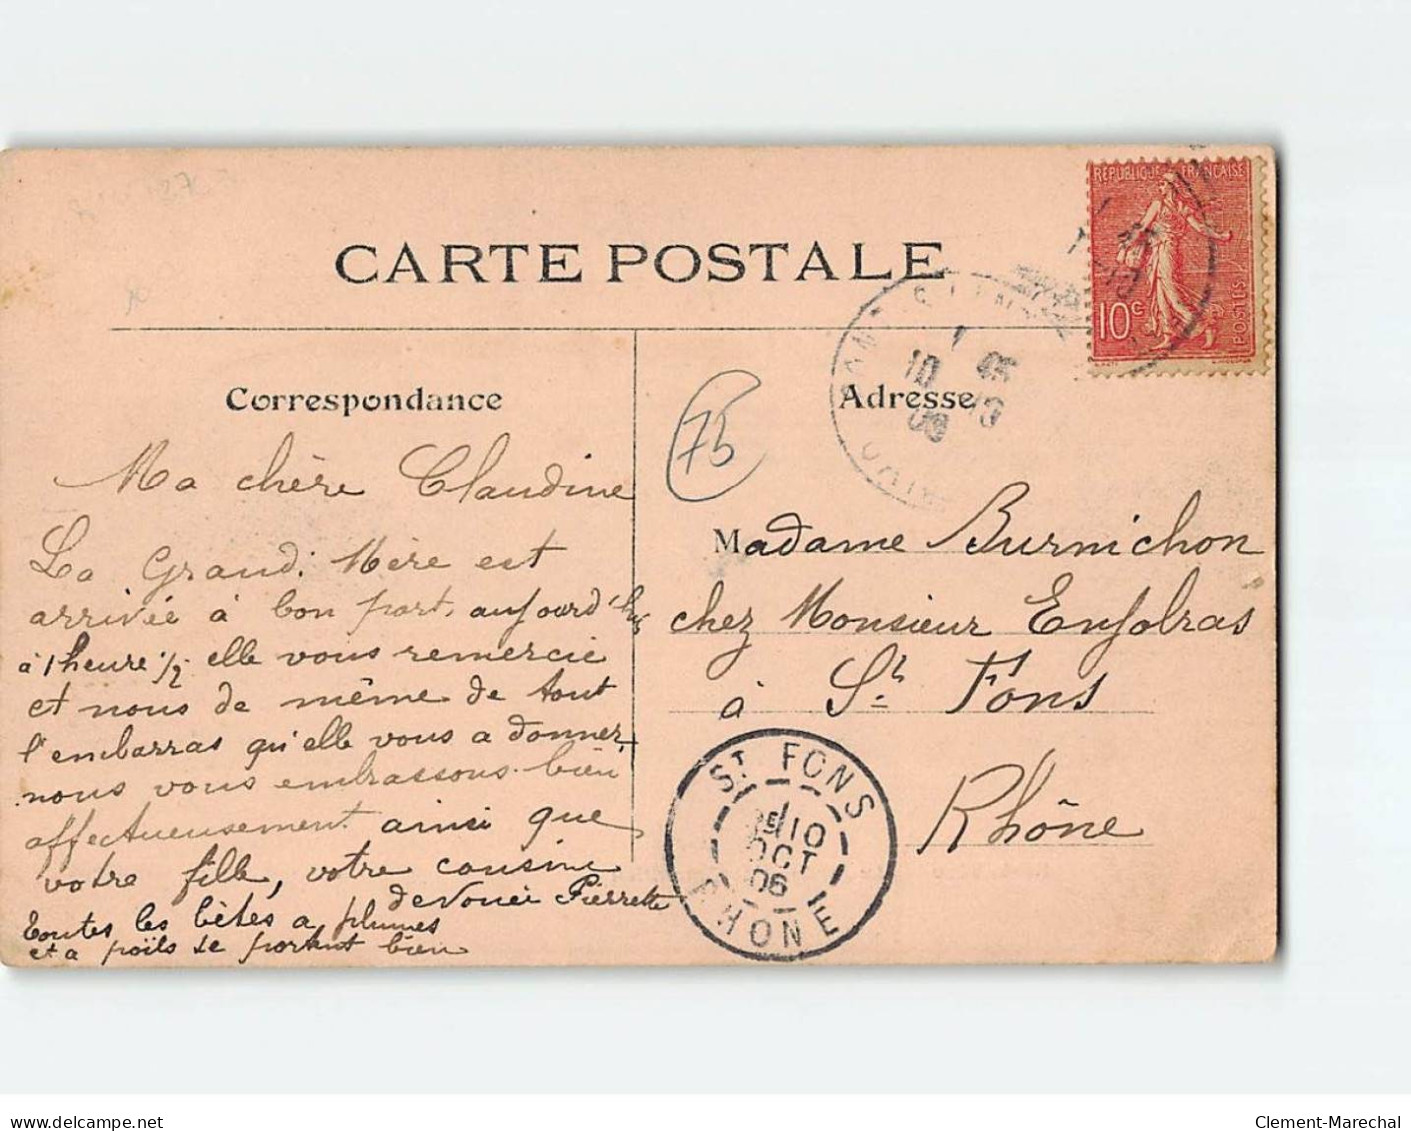 RÉPUBLIQUE FRANÇAISE
10c
POSTES
CARTE POSTALE
Correspondance
Adresse
75
1
10 45
06
Ma chère Claudine
La Grand. Mère est
arrivée à bon port, aujourd'hui
à 1 heure 1/2 elle vous remercie
et nous de même de tout
l'embarras qu'elle vous a donner,
nous vous embrassons bien
affectueusement ainsi que
votre fille, votre cousine
devouée Pierrette
toutes les bêtes a plumes
et a poils se portent bien
Madame Burnichon
chez Monsieur Enjolras
à St. Fons
Rhône
ST FONS
10
OCT
06
RHONE
Clement-Marechal